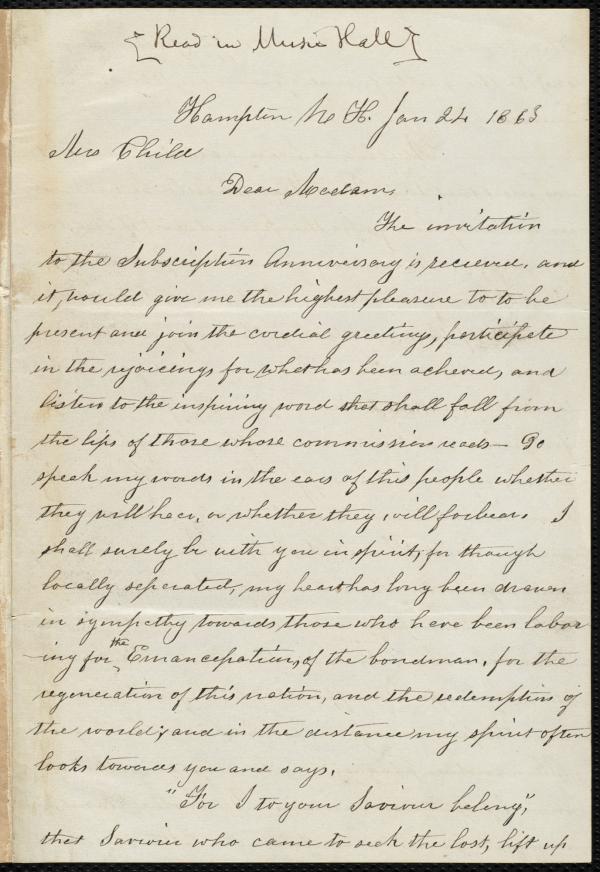 [Read in Music Hall]
Hampton N. H. Jan 24 1863
Mrs Child
Dear Madam,
The invitation
to the Subscription Anniversary is recieved, and
it, would give me the highest pleasure to to be
present and join the cordial greetings, participate
in the rejoicings for what has been acheved, and
listen to the inspiring word that shall fall from
the lips of those whose commission reads — Go
speak my words in the ears of this people whether
they will hear, or whether they will forbear. I
shall surely be with you in spirit, for though
locally seperated, my heart has long been drawn
in sympathy towards those who have been labor
-ing for the Emancepation, of the bondman, for the
regeneration of this nation, and the redemption of
the world; and in the distance my spirit often
looks towards you and says,
"For I to your Saviour belong",
that Saviour who came to seek the lost, lift up